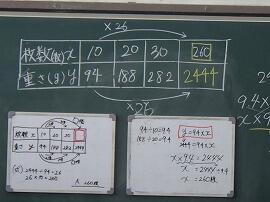 ×26
枚数(枚) x 10 20 30 260
重さ(g) y 94 188 282 2444
×26
枚数 x 10 20 30
重さ y 94 188 282 2444
(式) 2444÷94=26
26×10=260
A 260枚
94÷10=9.4
188÷20=9.4
y=9.4×x
2444=9.4×x
x×9.4=2444
x=2444÷9.4
x=260
9.4×
x×9